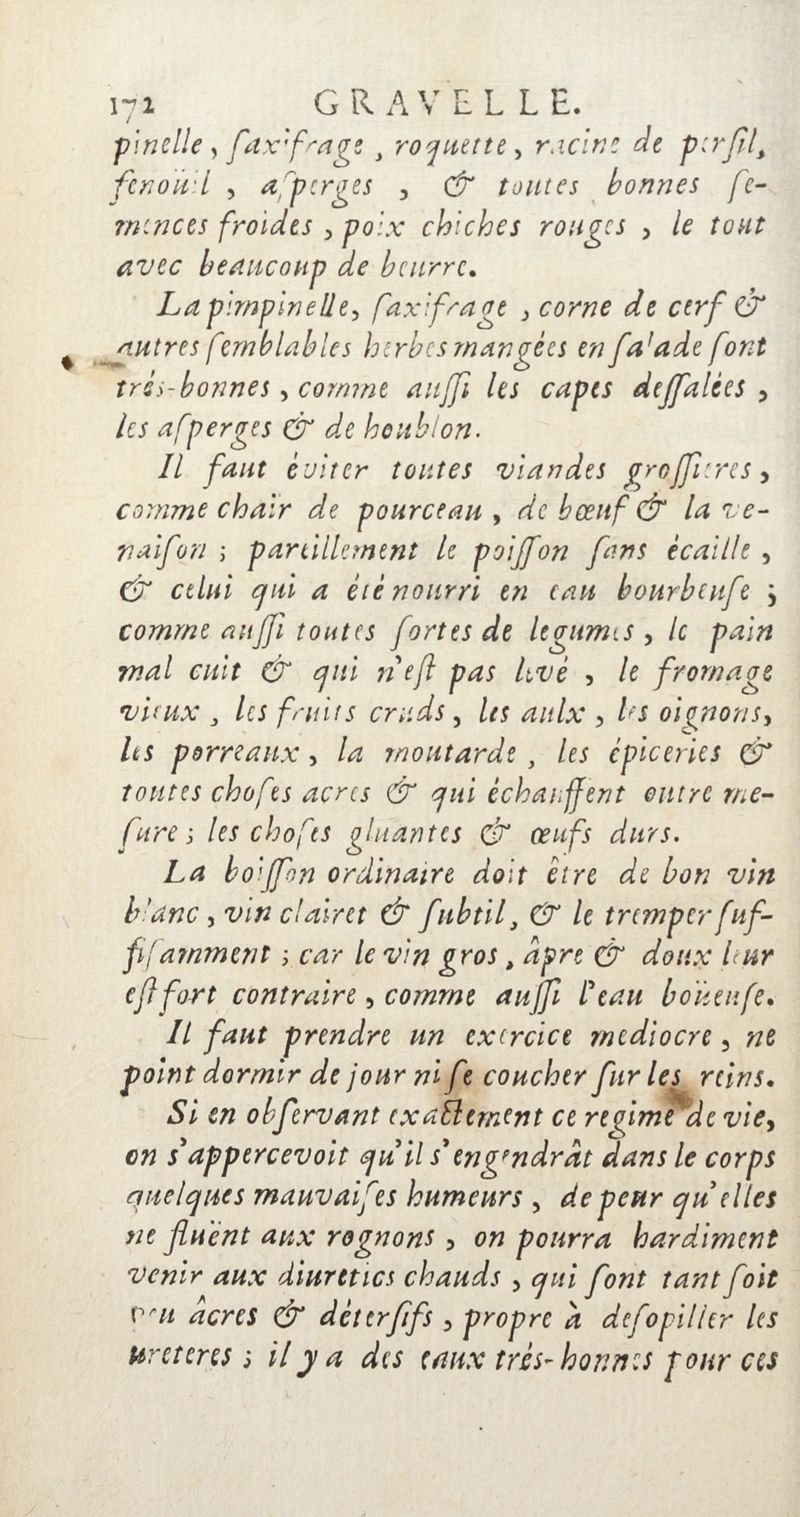 172 GRAVELLE.
pinelle, ſaxifrage, roquette, racine de perſil,
fenoüil, aſperges, & toutes bonnes ſe-
mences froides, poix chiches rouges, le tout
avec beaucoup de beurre.
La pimpinelle, ſaxifrage, corne de cerf &
autres ſemblables herbes mangées en ſalade ſont
trés-bonnes, comme auſſi les capes deſſalées,
les aſperges & de houblon.
Il faut éviter toutes viandes groſſieres,
comme chair de pourceau, de bœuf & la ve-
naiſon; pareillement le poiſſon ſans écaille,
& celui qui a été nourri en eau bourbeuſe;
comme auſſi toutes ſortes de legumes, le pain
mal cuit & qui n'eſt pas levé, le fromage
vieux, les fruits cruds, les aulx, les oignons,
les porreaux, la moutarde, les épiceries &
toutes choſes acres & qui échauffent outre me-
ſure; les choſes gluantes & œufs durs.
La boiſſon ordinaire doit être de bon vin
blanc, vin clairet & ſubtil, & le tremper ſuf-
fiſamment; car le vin gros, âpre & doux leur
eſt fort contraire, comme auſſi l'eau boüeuſe.
Il faut prendre un exercice mediocre, ne
point dormir de jour ni ſe coucher ſur les reins.
Si en obſervant exactement ce regime de vie,
on s'appercevoit qu'il s'engendrât dans le corps
quelques mauvaiſes humeurs, de peur qu'elles
ne fluënt aux rognons, on pourra hardiment
venir aux diuretics chauds, qui ſont tant ſoit
peu âcres & déterſifs, propre à deſopiller les
ureteres; il y a des eaux trés-bonnes pour ces